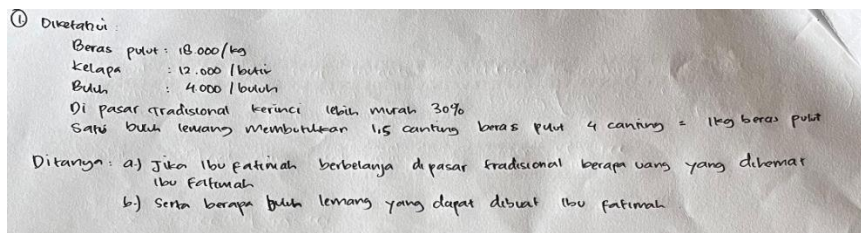 ① Diketahui :
Beras pulut : 18.000/kg
Kelapa : 12.000 /butir
Buluh : 4.000 /buluh
Di pasar Tradisional Kerinci lebih murah 30%
Satu buluh lemang membutuhkan 1,5 canting beras pulut 4 canting = 1kg beras pulut
Ditanya : a.) Jika Ibu Fatimah berbelanja di pasar tradisional berapa uang yang dihemat
Ibu Fatimah
b.) Serta berapa buluh lemang yang dapat dibuat Ibu Fatimah